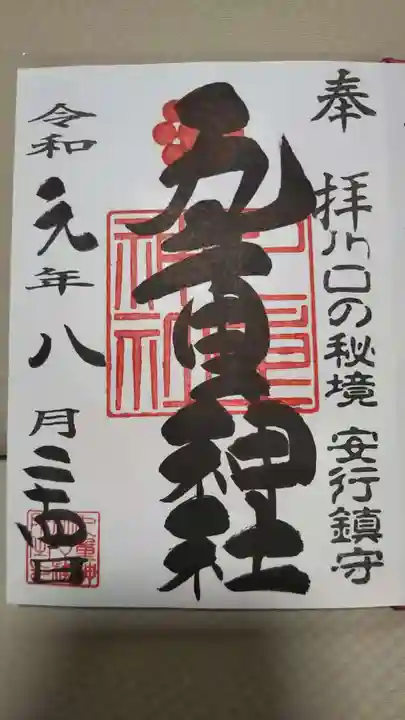 奉拝 川口の秘境 安行鎮守
九重神社
令和元年八月二十四日